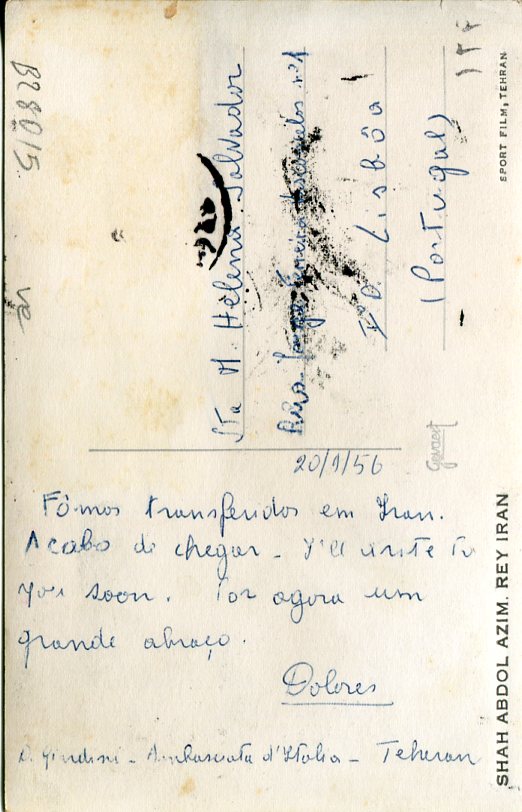 20/1/56
Fômos transferidos em Iran.
Acabo de chegar - I'll write to
you soon. Por agora um
grande abraço.
Dolores
D. - Ambasciata d'Italia - Teheran
Sta M. Helena Salvador
nº1
Lisbôa
(Portugal)
Gevaert
SHAH ABDOL AZIM. REY IRAN
SPORT FILM, TEHRAN
B28015